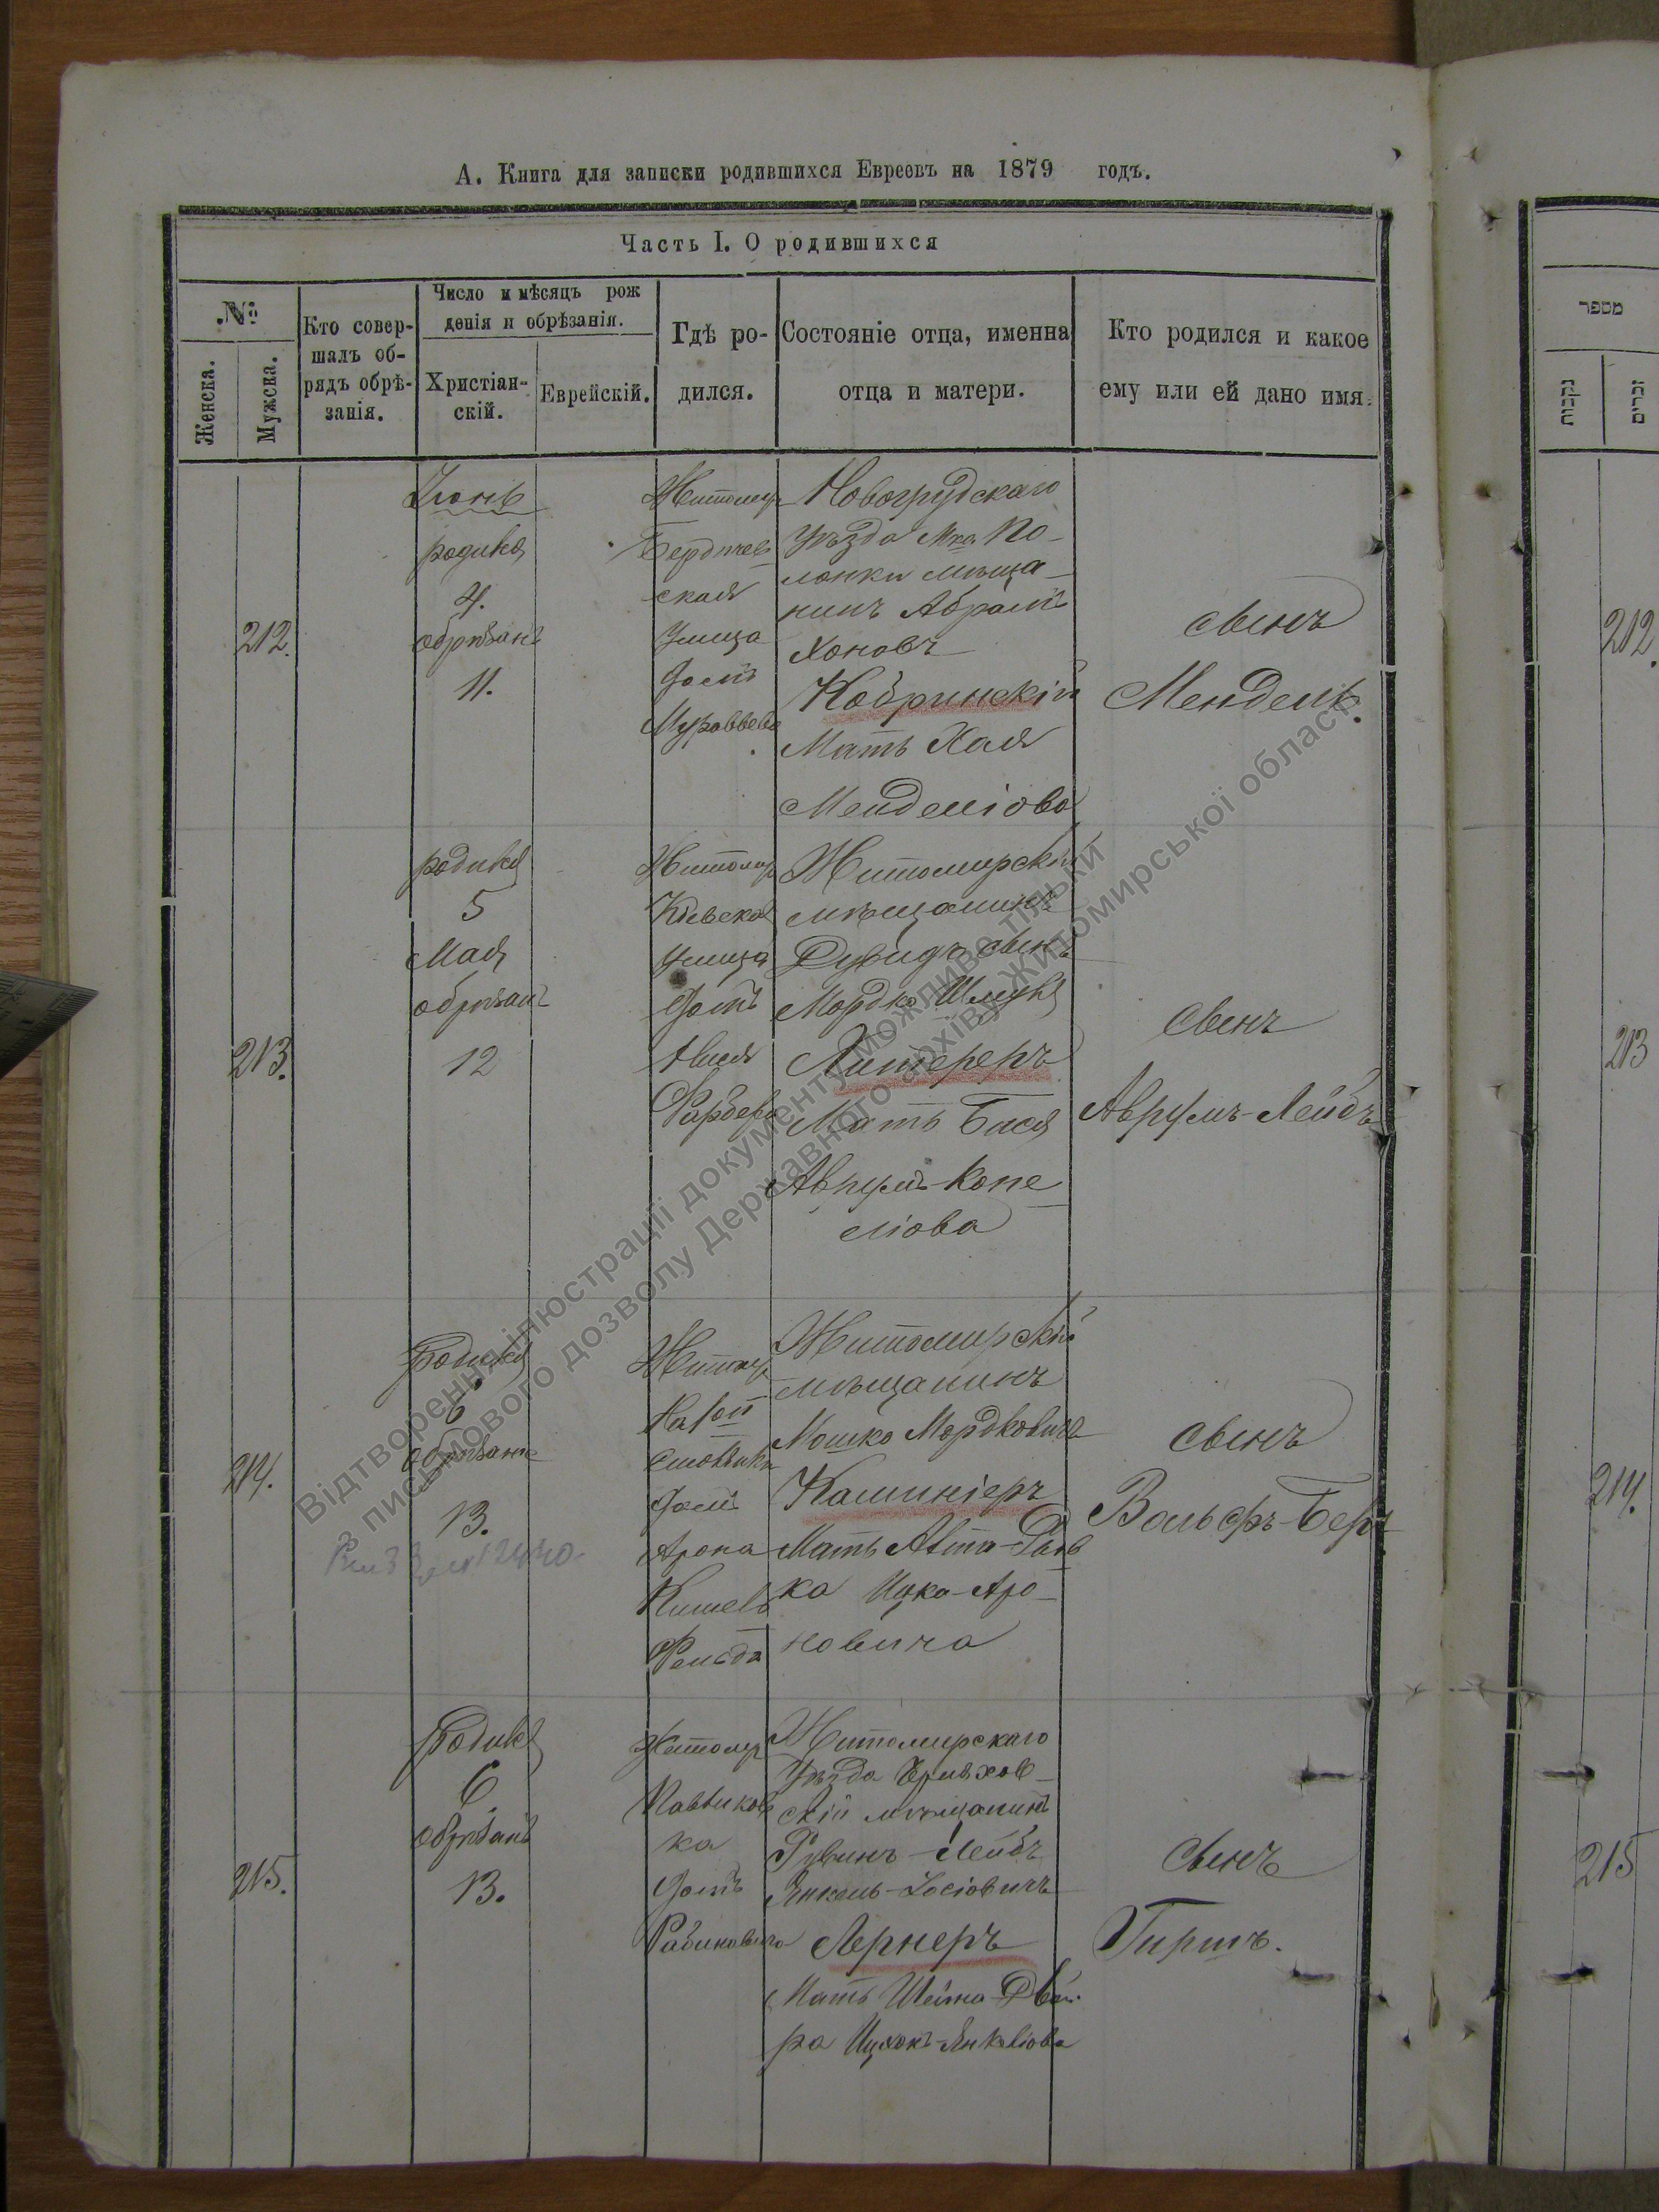 А. Книга для записки родившихся Евреевъ на 1879 годъ.
Часть I. О родившихся
№
Женска.
Мужска.
Кто совер-
шалъ об-
рядъ обрѣ-
занія.
Число и мѣсяцъ рож
денія и обрѣзанія.
Христіан-
скій.
Еврейскій.
Гдѣ ро-
дился.
Состояніе отца, именна
отца и матери.
Кто родился и какое
ему или ей дано имя.
מספר
נקבות
זכרים
212.
Іюнь
родился
4.
обрѣзанъ
11.
Житомир
Бердичев
ская
Улица
Домъ
Муравьева
Новогрудскаго
Уѣзда Мка По-
лонки мѣща-
нинъ Абрамъ
Хоновъ
Кобринскій
Мать Хая
Менделіова
сынъ
Мендель.
212.
213.
родился
5
Мая
обрѣзанъ
12
Житомир
Кіевская
Улица
Домъ
Житомирскій
мѣщанинъ
Дувидъ сынъ
Мордко Шмуля
Литереръ
Мать Бася
Аврумъ-Копе
ліова
сынъ
Аврумъ-Лейбъ
213
214.
родился
6
обрѣзанъ
13.
Житомир
Домъ
Арона
Житомирскій
мѣщанинъ
Мошко Мордковичъ
Каминіеръ
Мать
ка Ицка-Аро-
новича
сынъ
Вольфъ-Беръ
214.
215.
родился
6
обрѣзанъ
13.
Житомир
Павликов
ка
Домъ
Рабиновича
Житомирскаго
Уѣзда Черняхов-
скій мѣщанинъ
Рувинъ-Лейбъ
Янкель-Іосіовичъ
Лернеръ
Мать Шейна-Двой
ра Ицхокъ-Янкеліова
сынъ
Гиршъ.
215
Відтворення ілюстрації документу можливо тільки
з письмового дозволу Державного архіву Житомирської області